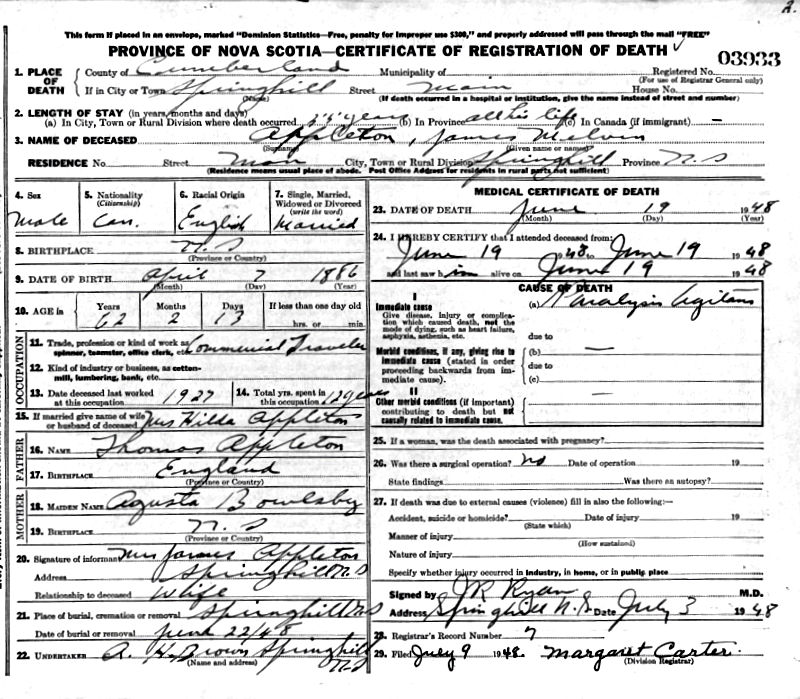 This form if placed in an envelope, marked "Dominion Statistics—Free, penalty for improper use $300," and properly addressed will pass through the mail "FREE"
PROVINCE OF NOVA SCOTIA—CERTIFICATE OF REGISTRATION OF DEATH
03933
1. PLACE OF DEATH
County of Cumberland Municipality of Registered No.
(For use of Registrar General only)
If in City or Town Springhill Street Main House No.
(Name) (If death occurred in a hospital or institution, give the name instead of street and number)
2. LENGTH OF STAY (in years, months and days)
(a) In City, Town or Rural Division where death occurred years (b) In Province all his life (c) In Canada (if immigrant) —
3. NAME OF DECEASED Appleton, James Melvin
(Surname) (Given name or names)
RESIDENCE No. Street Main City, Town or Rural Division Springhill Province N.S
(Residence means usual place of abode. Post Office Address for residents in rural parts not sufficient)
4. Sex
Male
5. Nationality
(Citizenship)
Can.
6. Racial Origin
English
7. Single, Married, Widowed or Divorced
(write the word)
Married
8. BIRTHPLACE N.S
(Province or Country)
9. DATE OF BIRTH April 7 1886
(Month) (Day) (Year)
10. AGE in Years Months Days If less than one day old
62 2 13 hrs. or min.
OCCUPATION
11. Trade, profession or kind of work as spinner, teamster, office clerk, etc. Commercial Traveler
12. Kind of industry or business, as cotton-mill, lumbering, bank, etc.
13. Date deceased last worked at this occupation 1927
14. Total yrs. spent in this occupation 12 years
15. If married give name of wife or husband of deceased Mrs Hilda Appleton
FATHER
16. NAME Thomas Appleton
17. BIRTHPLACE England
(Province or Country)
MOTHER
18. MAIDEN NAME Augusta Bowlsby
19. BIRTHPLACE N.S
(Province or Country)
20. Signature of informant Mrs James Appleton
Address Springhill N.S
Relationship to deceased Wife
21. Place of burial, cremation or removal Springhill N.S
Date of burial or removal June 22/48
22. UNDERTAKER A. H. Brown Springhill N.S
(Name and address)
MEDICAL CERTIFICATE OF DEATH
23. DATE OF DEATH June 19 1948
(Month) (Day) (Year)
24. I HEREBY CERTIFY that I attended deceased from:
June 19 1948 to June 19 1948
and last saw him alive on June 19 1948
CAUSE OF DEATH
I
Immediate cause (a) Paralysis Agitans
Give disease, injury or complication which caused death, not the mode of dying, such as heart failure, asphyxia, asthenia, etc.
due to
Morbid conditions, if any, giving rise to immediate cause (stated in order proceeding backwards from immediate cause).
(b) —
due to
(c)
II
Other morbid conditions (if important) contributing to death but not causally related to immediate cause.
—
25. If a woman, was the death associated with pregnancy?
26. Was there a surgical operation? no Date of operation 19
State findings Was there an autopsy?
27. If death was due to external causes (violence) fill in also the following:—
Accident, suicide or homicide? Date of injury 19
(State which)
Manner of injury
(How sustained)
Nature of injury
Specify whether injury occurred in industry, in home, or in public place
Signed by J R Ryan M.D.
Address Springhill N.S. Date July 3 1948
28. Registrar's Record Number 7
29. Filed July 9 1948. Margaret Carter.
(Division Registrar)